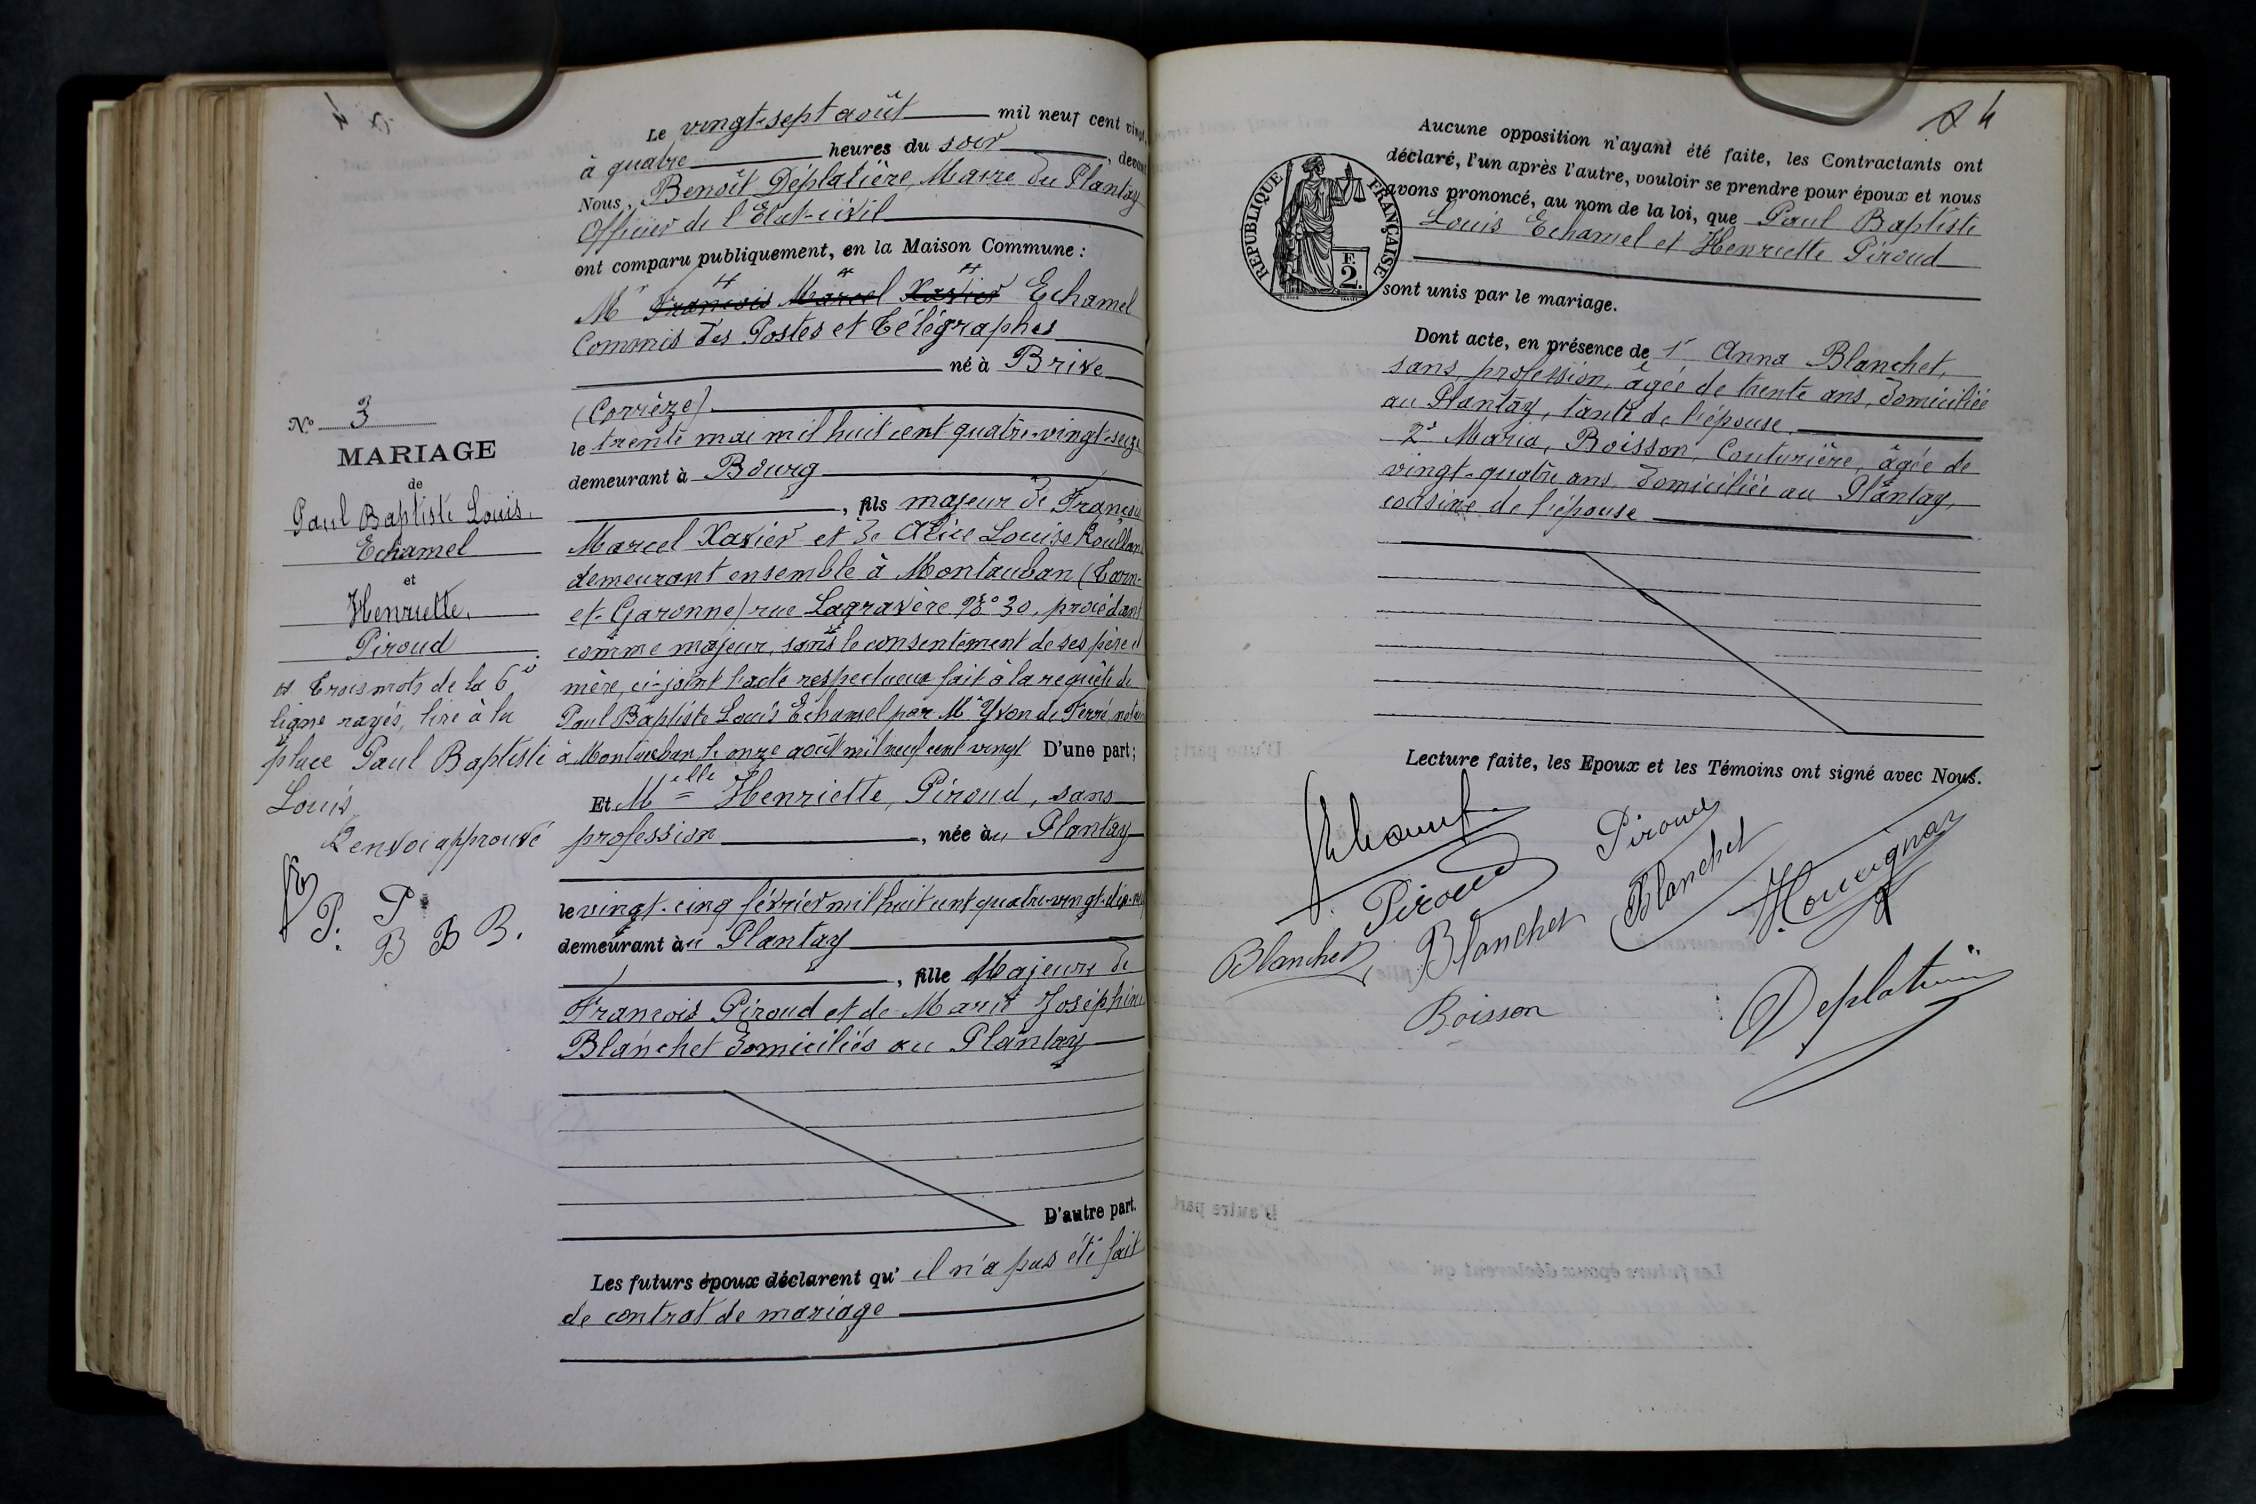 Le vingt-sept août mil neuf cent vingt
à quatre heures du soir, devant
Nous, Benoît Déplatière, Maire du Plantay
Officier de l'Etat-civil
ont comparu publiquement, en la Maison Commune :
Mr François Marcel Xavier Echamel
Commis des Postes et Télégraphes
né à Brive
(Corrèze)
le trente mai mil huit cent quatre-vingt-seize
demeurant à Bourg
, fils majeur de François
Marcel Xavier et de Alice Louise Roullan
demeurant ensemble à Montauban (Tarn-
et-Garonne) rue Lagravère No 30, procédant
comme majeur, sans le consentement de ses père et
mère, ci-joint l'acte respectueux fait à la requête de
Paul Baptiste Louis Echamel par Me Yvon de Ferré, notaire
à Montauban le onze août mil neuf cent vingt D'une part ;
Et Melle Henriette, Piroud, sans
profession, née àu Plantay
le vingt-cinq février mil huit cent quatre-vingt-dix-
demeurant àu Plantay
, fille Majeure de
François Piroud et de Marie Joséphine
Blanchet domiciliés au Plantay
D'autre part.
Les futurs époux déclarent qu'il n'a pas été fait
de contrat de mariage
No 3
MARIAGE
de
Paul Baptiste Louis,
Echamel
et
Henriette,
Piroud
Trois mots de la 6e
ligne rayés, lire à la
place Paul Baptiste
Louis
Renvoi approuvé
P. P
B B B.
4
RÉPUBLIQUE FRANÇAISE
F.
2.
Aucune opposition n'ayant été faite, les Contractants ont
déclaré, l'un après l'autre, vouloir se prendre pour époux et nous
avons prononcé, au nom de la loi, que Paul Baptiste
Louis Echamel et Henriette Piroud
sont unis par le mariage.
Dont acte, en présence de 1° Anna Blanchet,
sans profession, âgée de trente ans, domiciliée
au Plantay, tante de l'épouse.
2° Maria, Boisson, Couturière, âgée de
vingt-quatre ans, domiciliée au Plantay,
cousine de l'épouse
Lecture faite, les Epoux et les Témoins ont signé avec Nous.
Echamel
Piroud
Piroud
Blanchet
Blanchet
Blanchet
Boisson
Deplatière